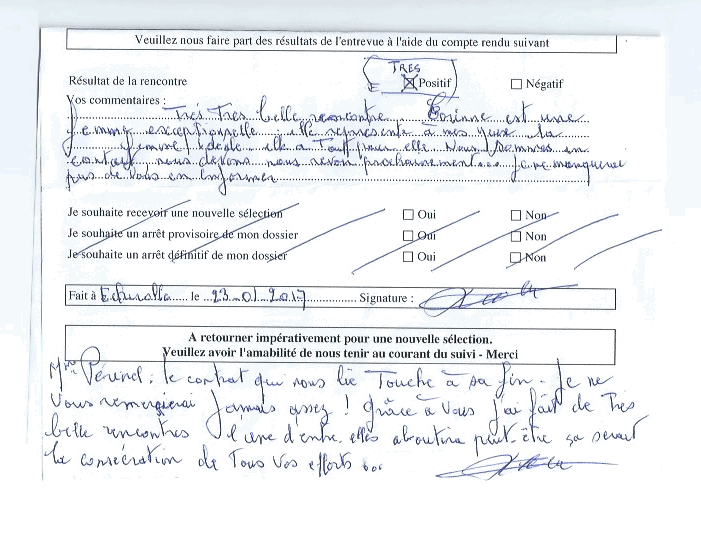 Veuillez nous faire part des résultats de l'entrevue à l'aide du compte rendu suivant
TRES
Résultat de la rencontre Positif Négatif
Vos commentaires :
Très Très belle rencontre Corinne est une
femme exceptionnelle elle représente à mes yeux la
femme idéale elle a Tout pour elle Nous sommes en
contact nous devons nous revoir prochainement... Je ne manquerai
pas de vous en informer
Je souhaite recevoir une nouvelle sélection Oui Non
Je souhaite un arrêt provisoire de mon dossier Oui Non
Je souhaite un arrêt définitif de mon dossier Oui Non
Fait à le 23-01-2017 Signature :
A retourner impérativement pour une nouvelle sélection.
Veuillez avoir l'amabilité de nous tenir au courant du suivi - Merci
Mme : le contrat qui nous lie Touche à sa fin - Je ne
Vous remercierai Jamais assez ! grâce à Vous j'ai fait de Très
belle rencontres l'une d'entre elles aboutira peut-être ça serait
la consécration de Tous Vos efforts ...